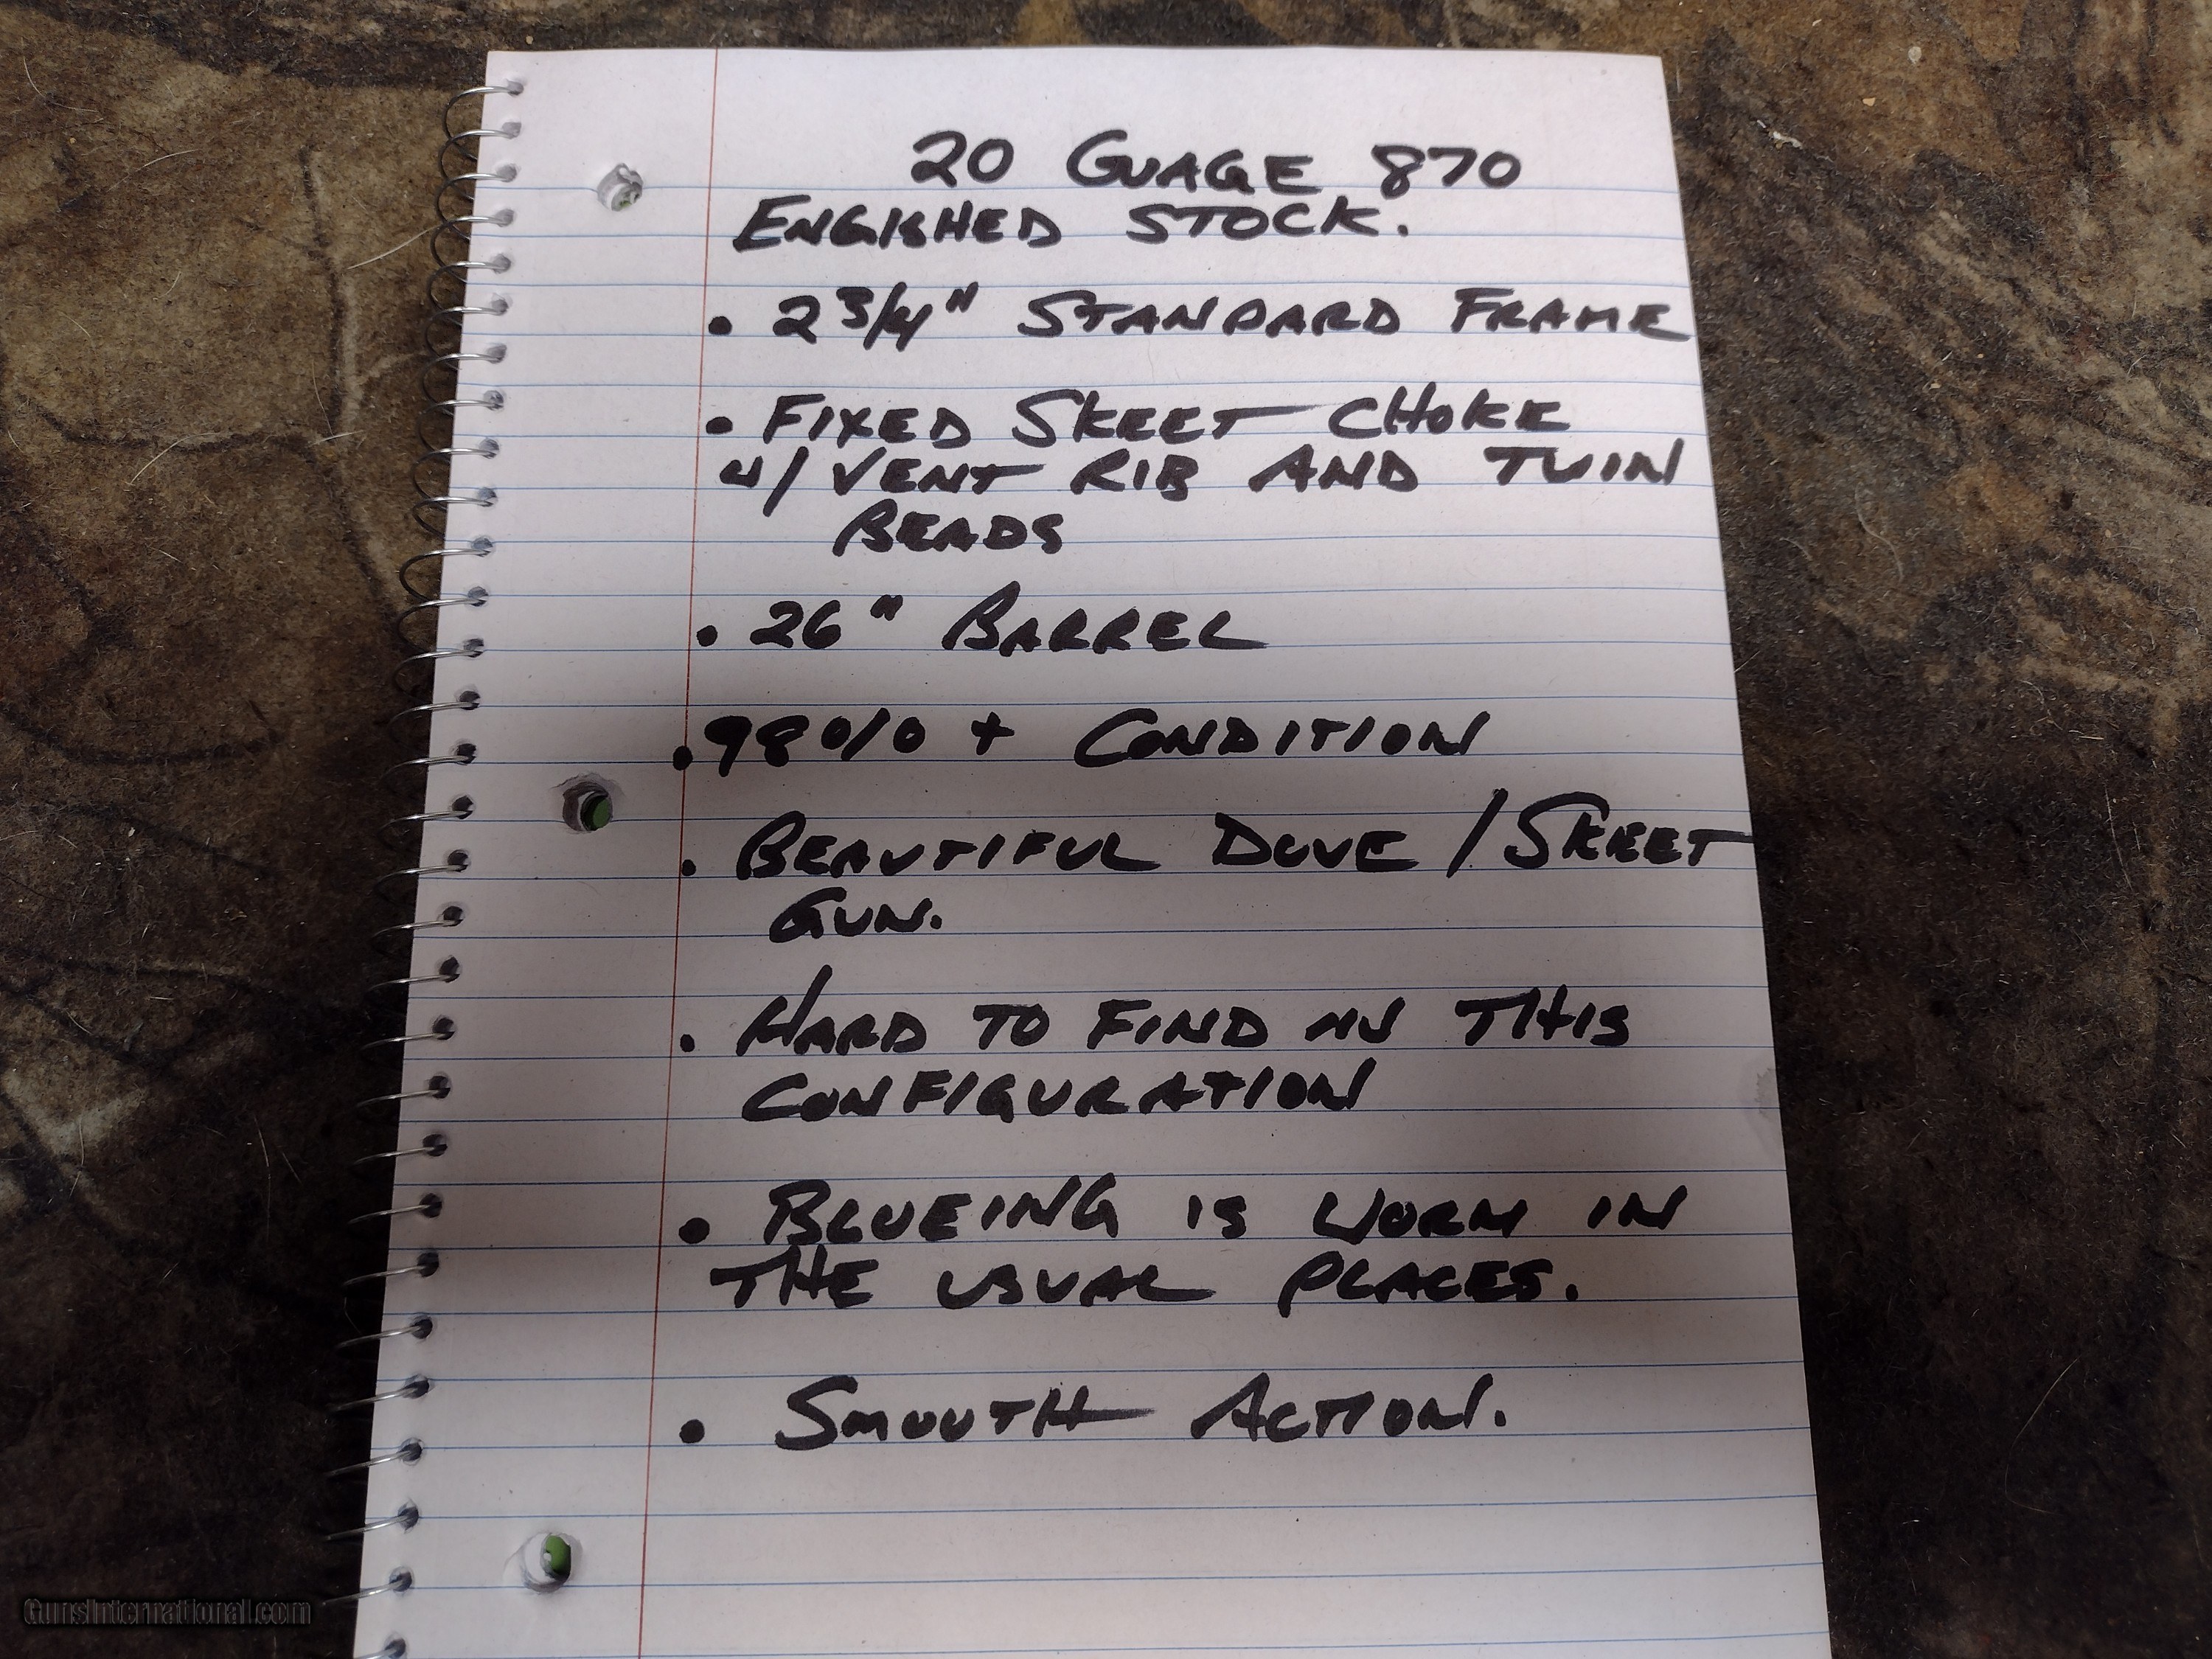 20 GUAGE 870
ENGISHED STOCK.
• 2 3/4" STANDARD FRAME
• FIXED SKEET CHOKE
W/ VENT RIB AND TWIN
BEADS
• 26" BARREL
• 98% + CONDITION
• BEAUTIFUL DOVE / SKEET
GUN.
• HARD TO FIND IN THIS
CONFIGURATION
• BLUEING IS WORN IN
THE USUAL PLACES.
• SMOOTH ACTION.
GunsInternational.com